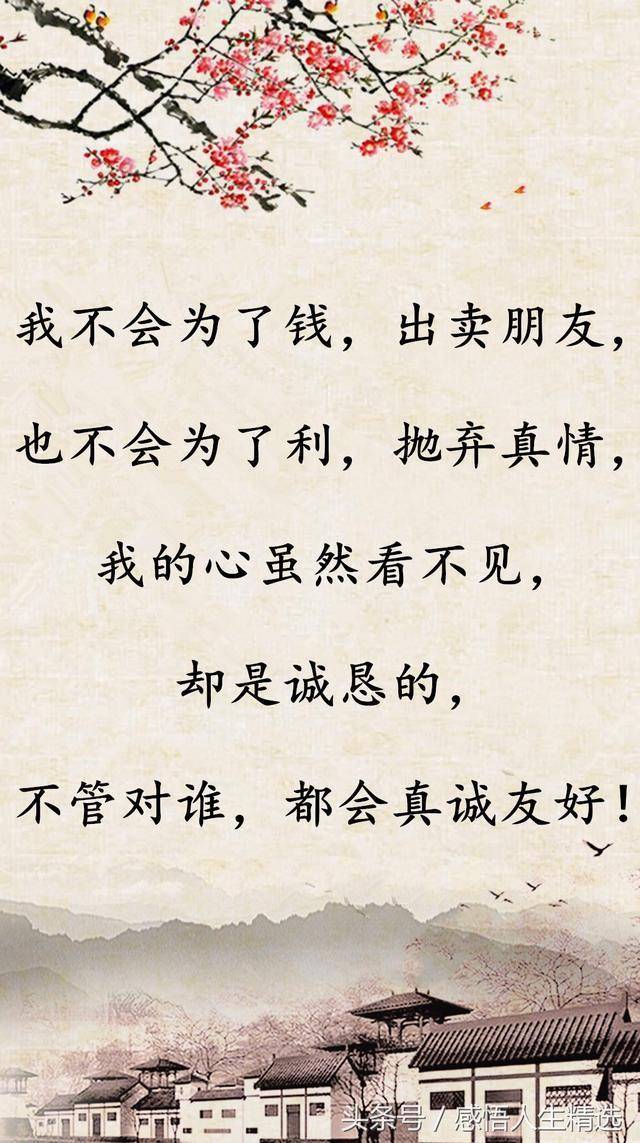 我不会为了钱，出卖朋友，
也不会为了利，抛弃真情，
我的心虽然看不见，
却是诚恳的，
不管对谁，都会真诚友好！
头条号 / 感悟人生精选